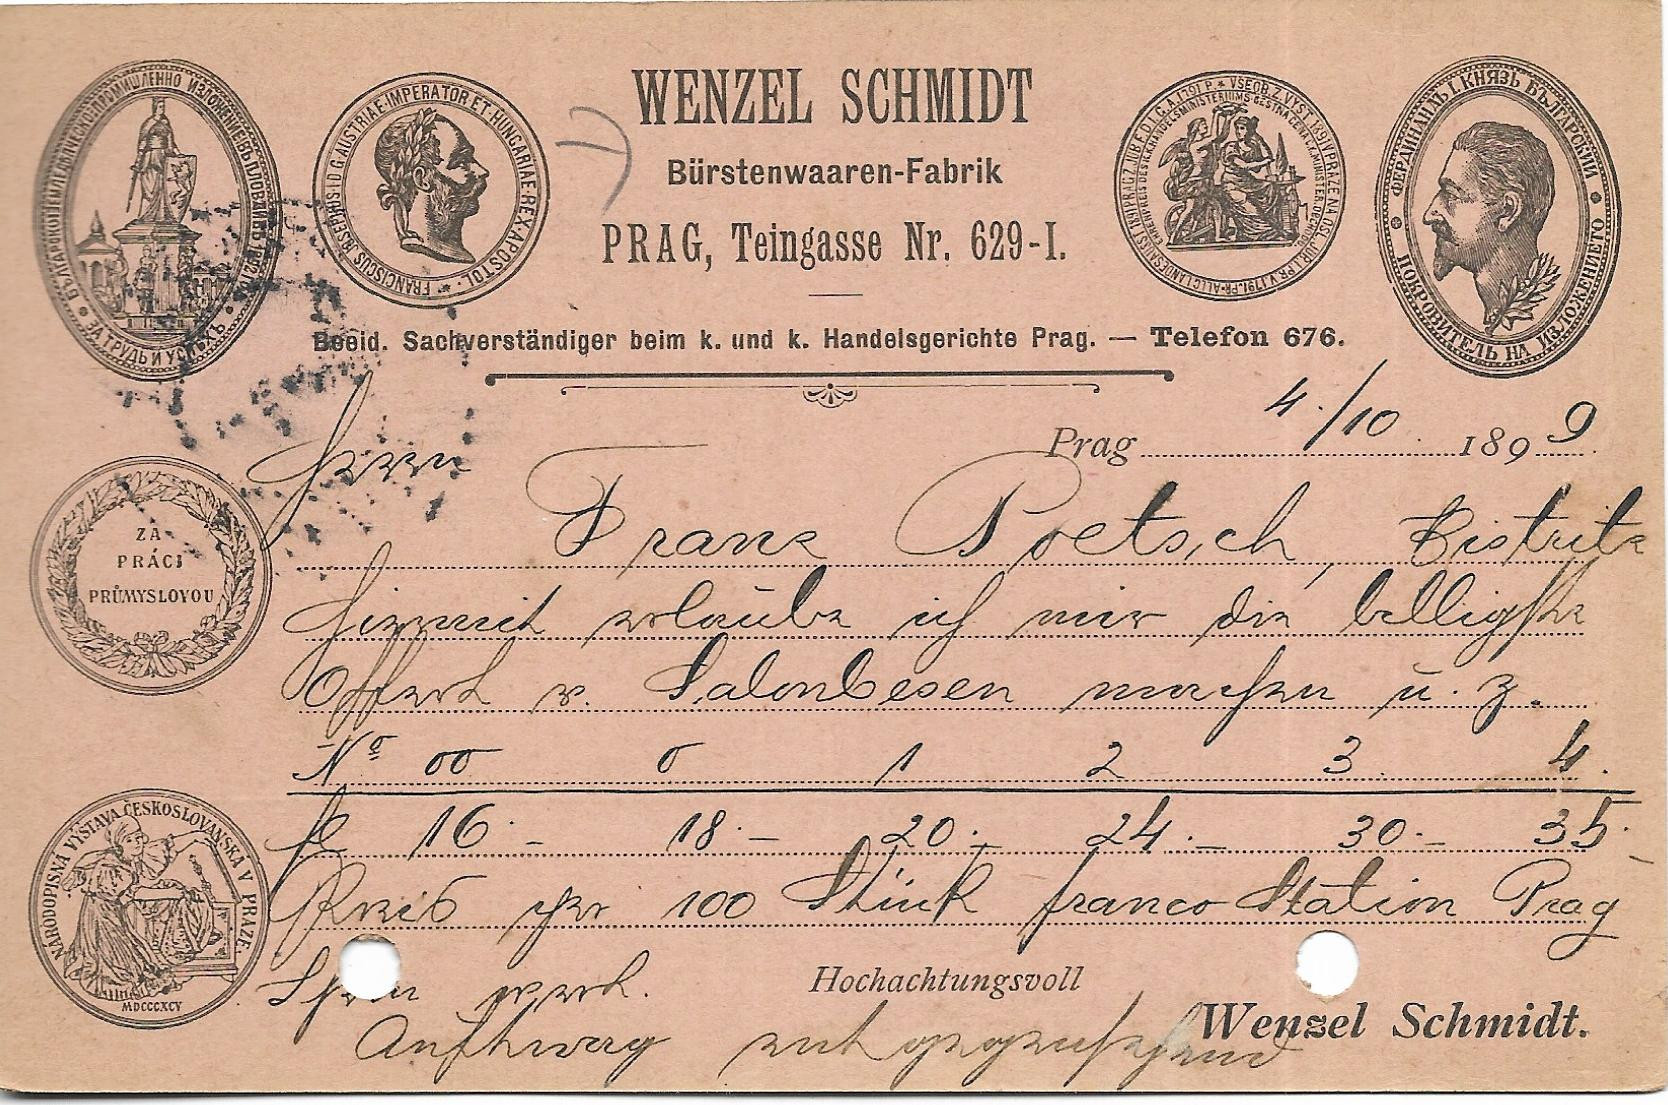 WENZEL SCHMIDT
Bürstenwaaren-Fabrik
PRAG, Teingasse Nr. 629-I.
Beeid. Sachverständiger beim k. und k. Handelsgerichte Prag. — Telefon 676.
ЗА ТРУДЪ И УСПѢХЪ
FRANCISCUS IOSEPHUS I D G AUSTRIAE IMPERATOR ET HUNGARIAE REX APOSTOL
ФЕРДИНАНДЪ I. КНЯЗЬ БЪЛГАРСКИЙ
ПОКРОВИТЕЛЬ НА ИЗЛОЖЕНИЕТО
Prag 4./10 1899
Herrn
Franz Poetsch, Bistritz
Hiermit erlaube ich mir die billigste
Offert v. Salonbesen machen u. z.
Nº 00 0 1 2 3 4.
fl 16.– 18.– 20.– 24.– 30.– 35.–
Preis per 100 Stück franco Station Prag
Ihren wert.
Auftrag entgegensehend
Hochachtungsvoll
Wenzel Schmidt.
ZA
PRÁCI
PRŮMYSLOVOU
NÁRODOPISNÁ VÝSTAVA ČESKOSLOVANSKÁ V PRAZE.
MDCCCXCV